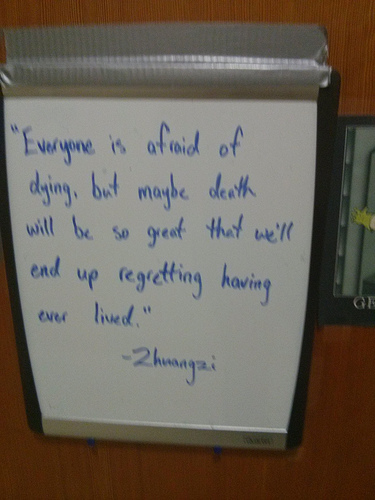 "Everyone is afraid of
dying, but maybe death
will be so great that we'll
end up regretting having
ever lived."
-Zhuangzi
GE